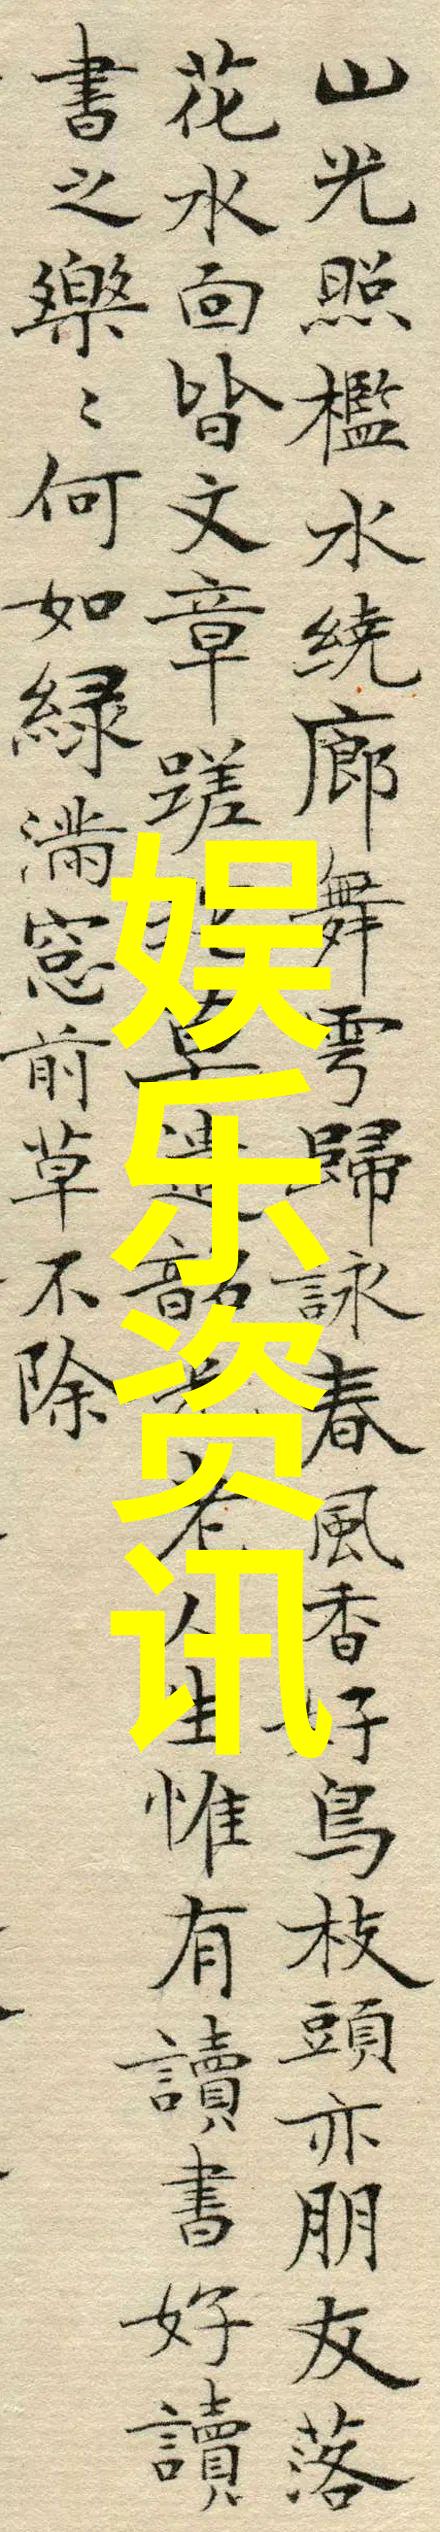 山光照檻水绕廊舞雩歸詠春風香好鳥枝頭亦朋友落
花水面皆文章蹉草遣韶光老人生惟有讀書好讀
書之樂〻何如綠滿窓前草不除
娱乐资讯